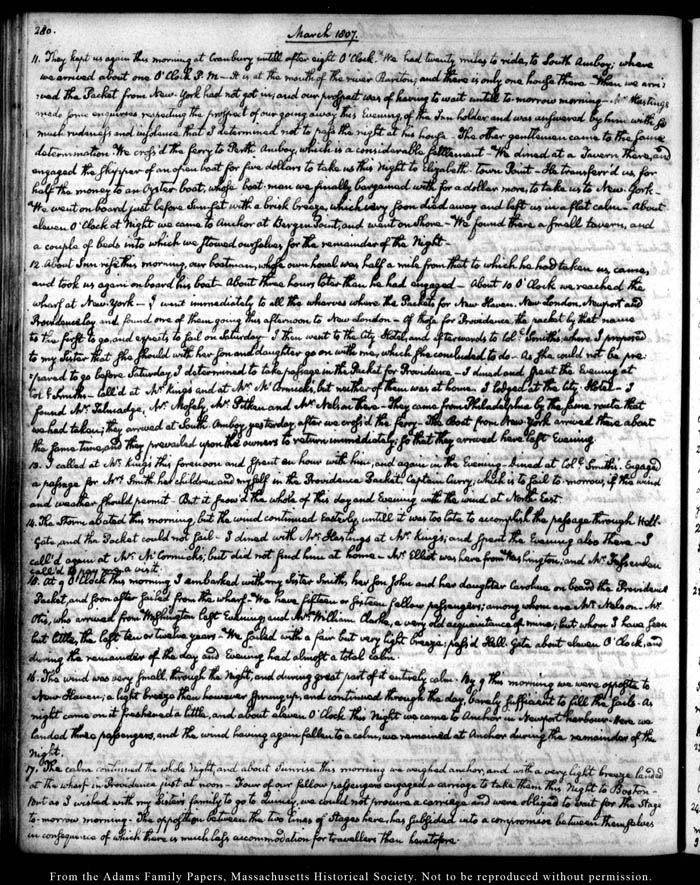 280.
March 1807.
11. They kept us again this morning at Cranbury untill after eight O'Clock. We had twenty miles to ride, to South Amboy; where
we arrived about one O'Clock P.M— It is at the mouth of the river Rariton; and there is only one house there— When we arri:
:ved the Packet from New-York had not got in; and our prospect was of having to wait untill to-morrow morning— Mr Hastings
made some enquiries respecting the prospect of our going away this Evening, of the Inn holder and was answered by him with so
much rudeness and insolence that I determined not to pass the night at his house— The other gentlemen came to the same
determination— We cross'd the ferry to Perth Amboy, which is a considerable settlement— We dined at a Tavern there, and
engaged the skipper of an open boat for five dollars to take us this Night to Elizabeth-town Point— He transferr'd us for
half the money to an Oyster boat, whose boat-men we finally bargained with for a dollar more, to take us to New-York—
We went on board just before Sun-set with a brisk breeze, which very soon died away and left us in a flat calm— About
eleven O'Clock at Night we came to Anchor at Bergen Point, and went on Shore— We found there a small tavern, and
a couple of beds into which we stowed ourselves for the remainder of the Night.
12. About Sun rise this morning, our boatman, whose own hovel was half a mile from that to which he had taken us, came,
and took us again on board his boat— About three hours later than he had engaged— About 10 O'Clock we reached the
wharf at New York— I went immediately to all the wharves where the Packets for New Haven, New London, Newport and
Providence lay and found one of them going this afternoon to New London— Of those for Providence, the packet by that name
is the first to go, and expects to sail on Saturday— I then went to the City Hotel, and afterwards to Colo. Smith's where I proposed
to my Sister that she should with her son and daughter go on with me, which she concluded to do— As she could not be pre:
:pared to go before Saturday, I determined to take passage in the Packet for Providence— I dined and spent the Evening at
Col. Smith's— call'd at Mr Kings and at Mr McCormicks, but neither of them was at home. I lodged at the City-Hotel— I
found Mr. Talmadge, Mr. Mosely, Mr. Pitkin and Mr. Nelson there— They came from Philadelphia by the same route that
we had taken; they arrived at South Amboy yesterday, after we cross'd the ferry— The Boat from New York arrived there about
the same time, and they prevailed upon the owners to return immediately, so that they arrived here last Evening.
13. I called at Mr. King's this forenoon and spent an hour with him, and again in the Evening— Dined at Colo. Smith's. Engaged
a passage for Mrs. Smith her children, and myself in the Providence Packet. Captain Curry, which is to sail to-morrow, if the wind
and weather should permit— But it snow'd the whole of this day and Evening with the wind at North East.
14. The storm abated this morning, but the wind continued Easterly, untill it was too late to accomplish the passage through Hell-
Gate, and the Packet could not sail— I dined with Mr. Hastings at Mr. Kings; and spent the Evening also there— I
call'd again at Mr. McCormicks; but did not find him at home— Mr. Elliot was here from Washington; and Mr. Fessenden
call'd to pay me a visit.
15. At 9 O'Clock this morning I embarked with my Sister Smith, her son John and her daughter Caroline on board the Providence
Packet, and soon after sailed from the wharf— We have fifteen or sixteen fellow passengers; among whom are Mr. Nelson— Mr.
Otis, who arrived from Washington last Evening, and Mr. William Clarke, a very old acquaintance of mine; but whom I have seen
but little, the last ten or twelve years— We sailed with a fair but very light breeze; pass'd Hell Gate about eleven O'Clock, and
during the remainder of the day and Evening had almost a total calm.
16. The wind was very small, through the Night, and during great part of it entirely calm. By 9 this morning we were opposite to
New Haven; a light breeze then however sprung up, and continued through the day, barely sufficient to fill the sails. As
night came on it freshened a little, and about eleven O'Clock this Night we came to Anchor in Newport harbour. Here we
landed three passengers, and the wind having again fallen to a calm, we remained at Anchor during the remainder of the
Night.
17. The calm continued the whole Night, and about Sunrise this morning we weighed anchor, and with a very light breeze landed
at the wharf in Providence just at noon— Four of our fellow passengers engaged a carriage to take them this Night to Boston—
But as I wished with my Sisters family to go to Quincy, we could not procure a carriage and were obliged to wait for the Stage
to-morrow morning. The opposition between the two lines of Stages here, has subsided into a compromise between themselves
in consequence of which there is much less accommodation for travellers than heretofore.
From the Adams Family Papers, Massachusetts Historical Society. Not to be reproduced without permission.